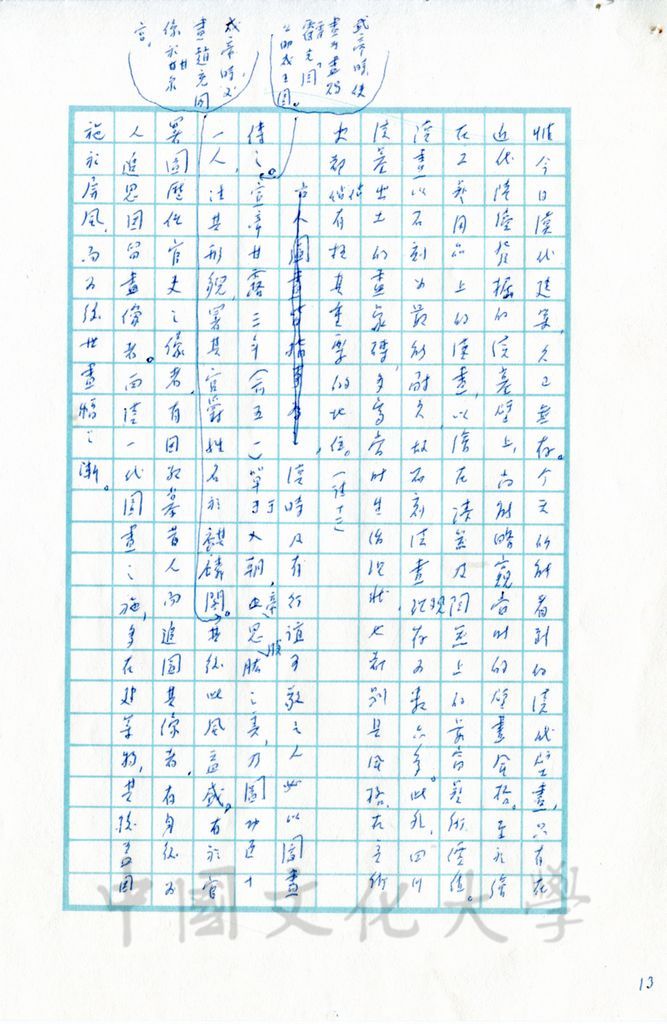 惟今日漢代建築,久已無存。今天所能看到的漢代壁畫,只有在
近代陸續發掘的漢墓壁上,尚能略窺當時的壁畫風格。至於繪
在工藝用品上的漢畫,以繪在漆器及陶器上的最富藝術價值。
漢畫以石刻為最能耐久,故石刻漢畫,現存為數亦多。此外,四川
漢墓出土的畫象磚,多寫當時生活狀況,也都別具風格,在藝術
史都佔有極其重要的地位。(註十二)
漢時凡有行誼可敬之人必以圖畫
傳之。宣帝甘露三年(前五一)單于入朝,帝思股肱之美,乃圖功臣十
一人,法其形貌,署其官爵姓名於麒麟閣。其後此風益盛。有於官
署圖歷任官吏之像者,有因衷慕昔人而追圖其像者,有身後為
人追思圖留畫像者。而漢一代圖畫之施,多在建築物,其後書圖
施於屏風,而為後世畫幅之漸。
武帝時使
畫工畫
霍光圖
公助成王圖。
成帝時又
畫趙充國
像於甘泉
宮,
中國文化大學
13